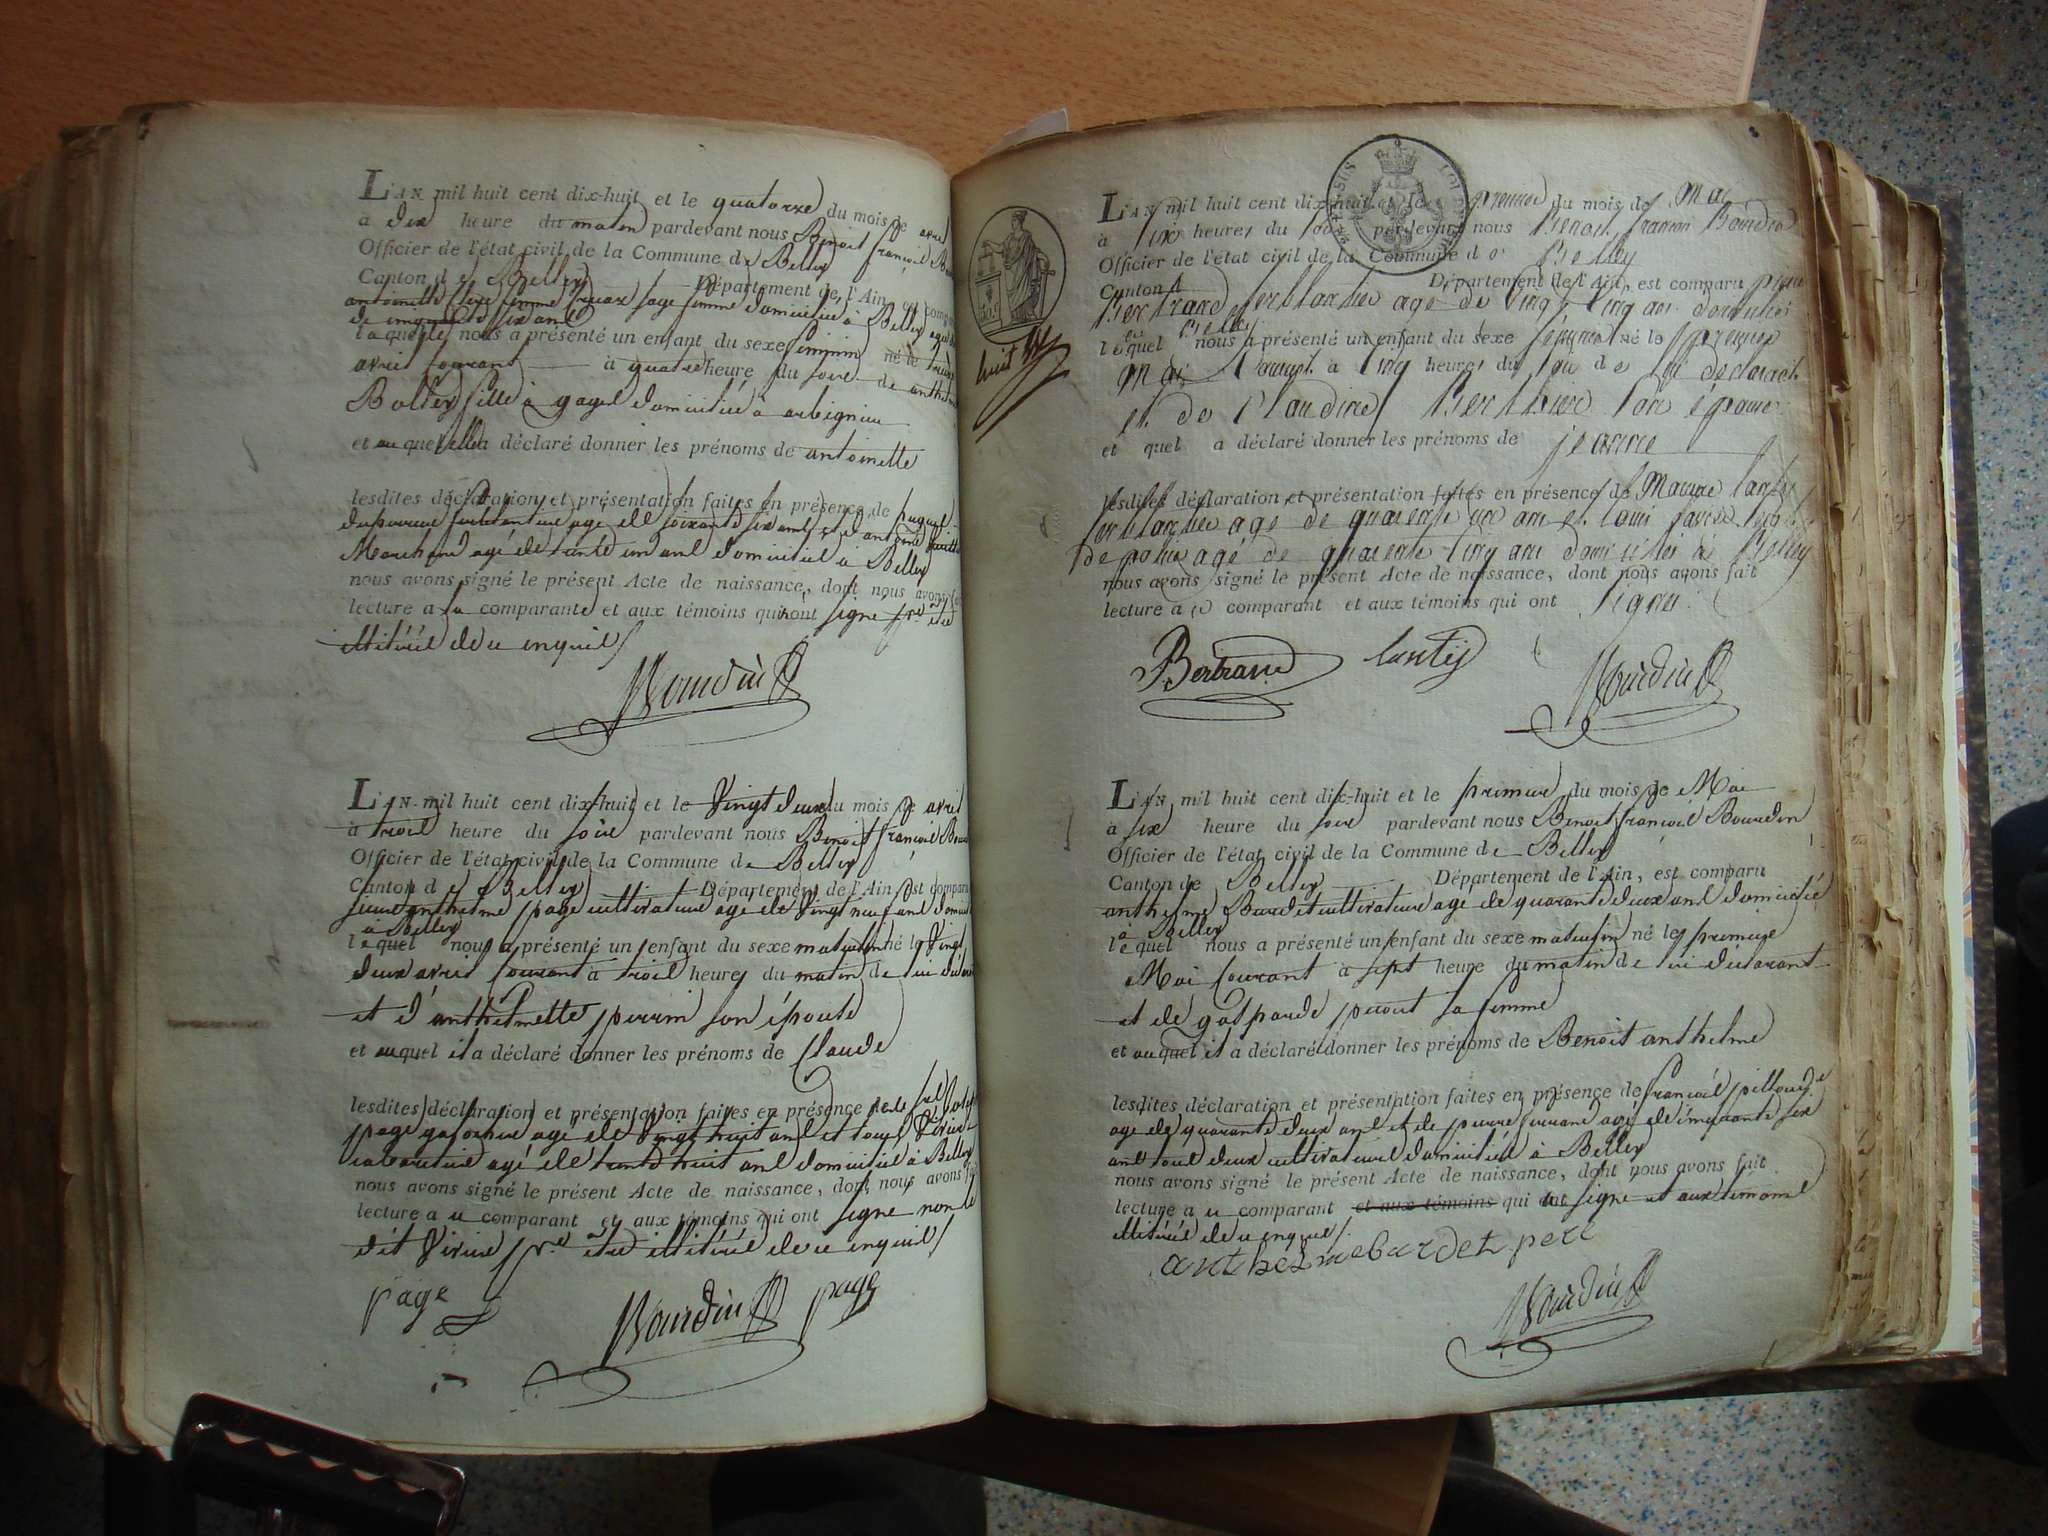 L'AN mil huit cent dix-huit et le quatorze du mois de avril
à dix heure du matin pardevant nous Benoit françois
Officier de l'état civil de la Commune de Belley
Canton de Belley Département de l'Ain, est comparu
antoinette femme sage femme domiciliée à Belley agée
de cinquante six ans
laquelle nous a présenté un enfant du sexe feminin né le treize
avril courant à quatre heure du soir de anthelmette
fille à gages domiciliée à arbignieu
et auquel elle a déclaré donner les prénoms de antoinette
lesdites déclaration et présentation faites en présence de
agé de soixante six ans et d'antoine
Marchand agé de trente un ans domiciliés à Belley
nous avons signé le présent Acte de naissance, dont nous avons fait
lecture a la comparante et aux témoins qui n'ont signé pr être
illitérés de ce enquis
Bourdin
L'AN mil huit cent dix-huit et le Vingt deux du mois de avril
à trois heure du soir pardevant nous Benoit françois
Officier de l'état civil de la Commune de Belley
Canton de Belley Département de l'Ain, est comparu
anthelme page cultivateur agé de Vingt neuf ans domicilié
à Belley
lequel nous a présenté un enfant du sexe masculin né le Vingt
deux avril courant à trois heures du matin de lui déclarant
et d'anthelmette perrin son épouse
et auquel il a déclaré donner les prénoms de Claude
lesdites déclaration et présentation faites en présence de
page agé de Vingt huit ans et
cabaretier agé de trente huit ans domiciliés à Belley
nous avons signé le présent Acte de naissance, dont nous avons fait
lecture a ce comparant et aux témoins qui ont signé non le
dit pr être illitéré de ce enquis
page Bourdin page
huit
L'AN mil huit cent dix-huit et le premier du mois de Mai
à six heures du soir pardevant nous Benoit francois Bourdin
Officier de l'état civil de la Commune de Belley
Canton d Département de l'Ain, est comparu pierre
Bertrand ferblantier agé de vingt cinq ans domicilié
à Belley
lequel nous a présenté un enfant du sexe féminin né le premier
Mai Courant à cinq heures du soir de lui déclarant
et de Claudine Berthier son épouse
et quel a déclaré donner les prénoms de jeanne
lesdites déclaration et présentation faites en présence de
ferblantier agé de quarente un ans et
de police agé de quarente cinq ans domiciliés à Belley
nous avons signé le présent Acte de naissance, dont nous avons fait
lecture a ce comparant et aux témoins qui ont signé.
Bertrand Bourdin
L'AN mil huit cent dix-huit et le premier du mois de Mai
à six heure du soir pardevant nous Benoit françois Bourdin
Officier de l'état civil de la Commune de Belley
Canton de Belley Département de l'Ain, est comparu
anthelme Burdet cultivateur agé de quarante deux ans domicilié
à Belley
lequel nous a présenté un enfant du sexe masculin né le premier
Mai Courant à sept heure du matin de lui déclarant
et de gasparde sa femme
et auquel il a déclaré donner les prénoms de Benoit anthelme
lesdites déclaration et présentation faites en présence de françois
agé de quarante deux ans et de pierre agé de cinquante six
ans tous deux cultivateurs domiciliés à Belley
nous avons signé le présent Acte de naissance, dont nous avons fait
lecture a ce comparant et aux témoins qui a signé et aux témoins
illitérés de ce enquis
anthelme burdet pere
Bourdin